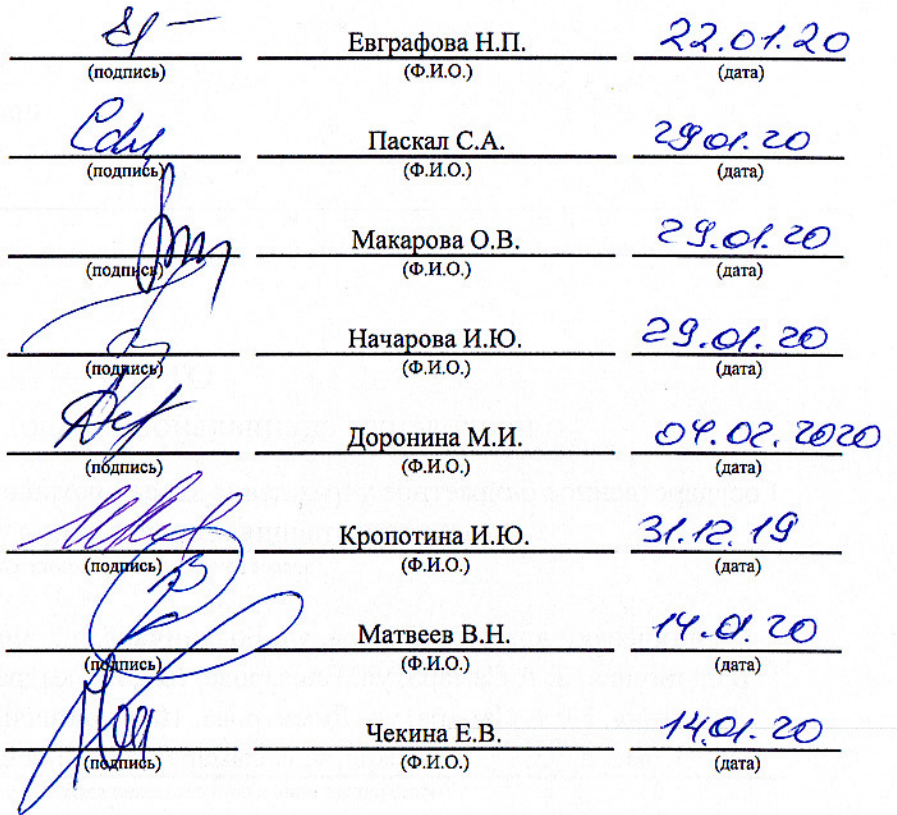 Евграфова Н.П. 22.01.20
(подпись) (Ф.И.О.) (дата)
Паскал С.А. 29.01.20
(подпись) (Ф.И.О.) (дата)
Макарова О.В. 29.01.20
(подпись) (Ф.И.О.) (дата)
Начарова И.Ю. 29.01.20
(подпись) (Ф.И.О.) (дата)
Доронина М.И. 04.02.2020
(подпись) (Ф.И.О.) (дата)
Кропотина И.Ю. 31.12.19
(подпись) (Ф.И.О.) (дата)
Матвеев В.Н. 14.01.20
(подпись) (Ф.И.О.) (дата)
Чекина Е.В. 14.01.20
(подпись) (Ф.И.О.) (дата)